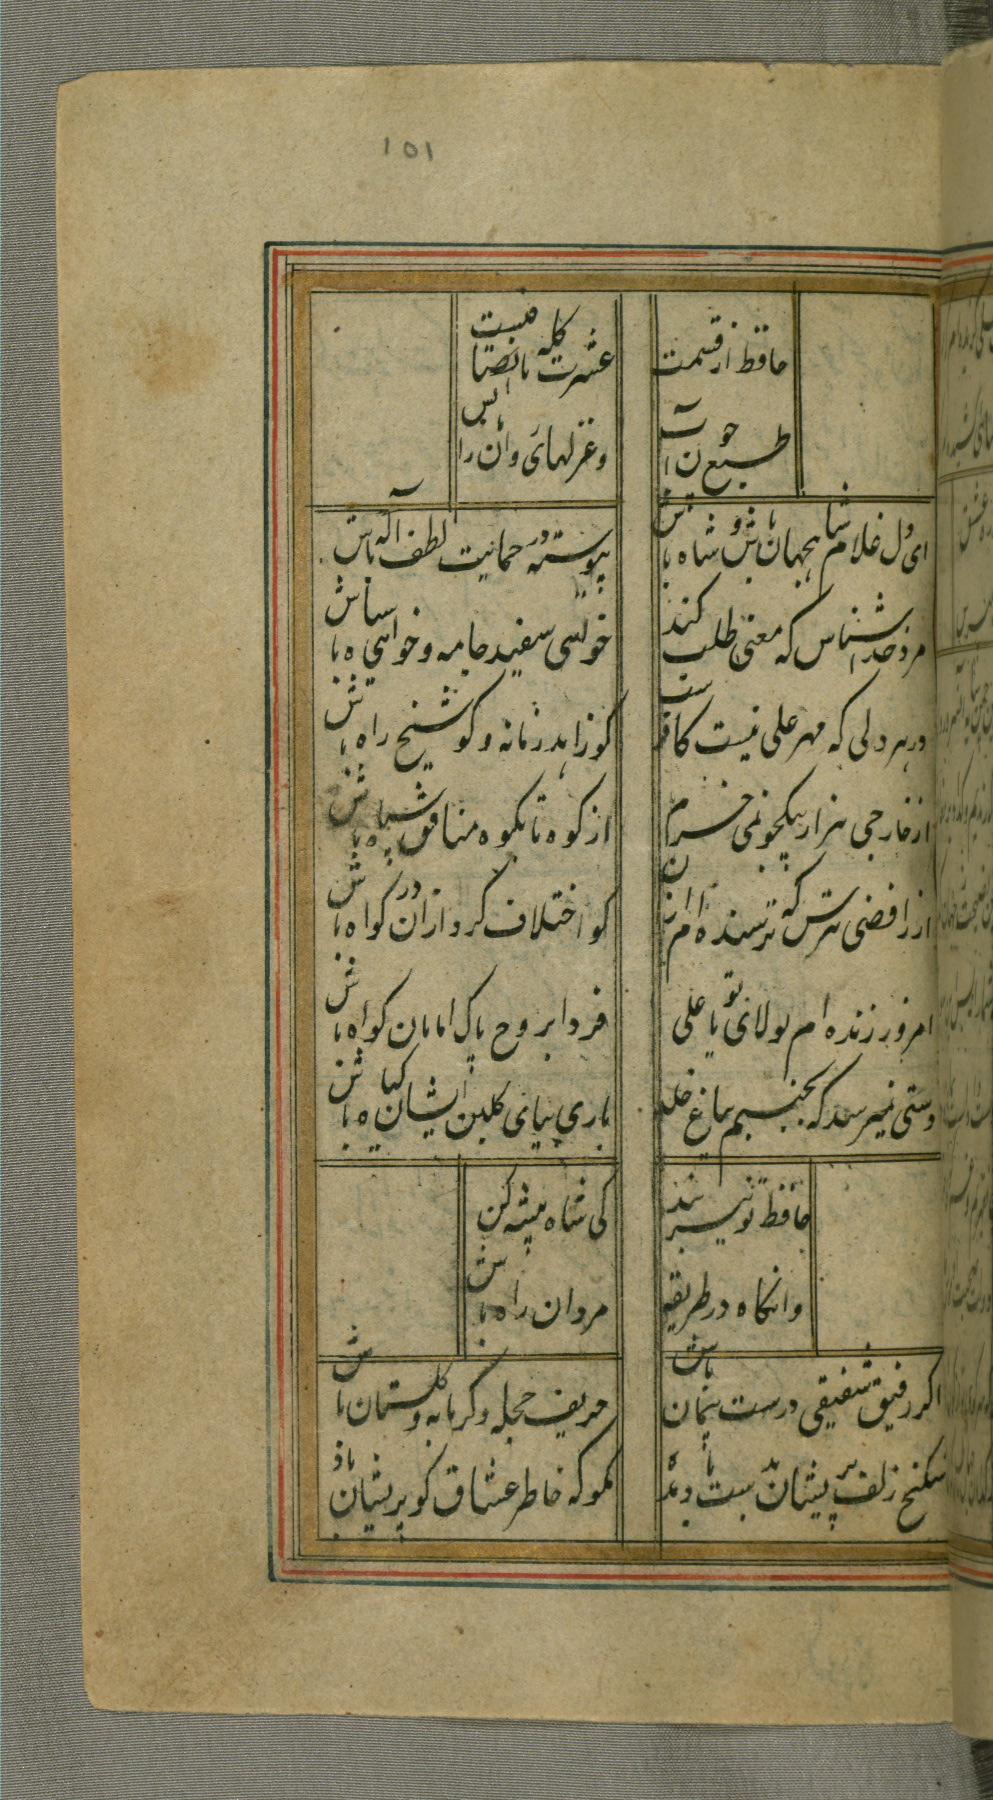 ۱۵۱
حافظ از قسمت
عشرت کله نا انصافیست
طبع چون آب
و غزلهای روان ما را بس
ای دل غلام شاه جهان باش و شاه باش
پیوسته در حمایت لطف آله باش
مرد خداشناس که معنی طلب کند
خواهی سفید جامه و خواهی سیاه باش
در هر دلی که مهر علی نیست کافرست
کو زاهد زمانه و کو شیخ راه باش
از خارجی هزار بیکجو نمی خرم
از کوه تا بکوه منافق سپاه باش
از رافضی مترس که ترسنده ام از آن
کو اختلاف کرد و از آن در کواه باش
امروز زنده ام بولای تو یا علی
فردا بروح پاک امامان کواه باش
دستی نمیرسد که بچینیم باغ خلد
باری بپای کلبن ایشان کیاه باش
حافظ تو
کی شاه پیشه کن
وانکاه در طریقه
مردان راه باش
اکر رفیق شفیقی درست پیمان باش
حریف حجله و کرمابه و کلستان باش
شکنج زلف پریشان بدست باد مده
مکو که خاطر عشاق کو پریشان باش